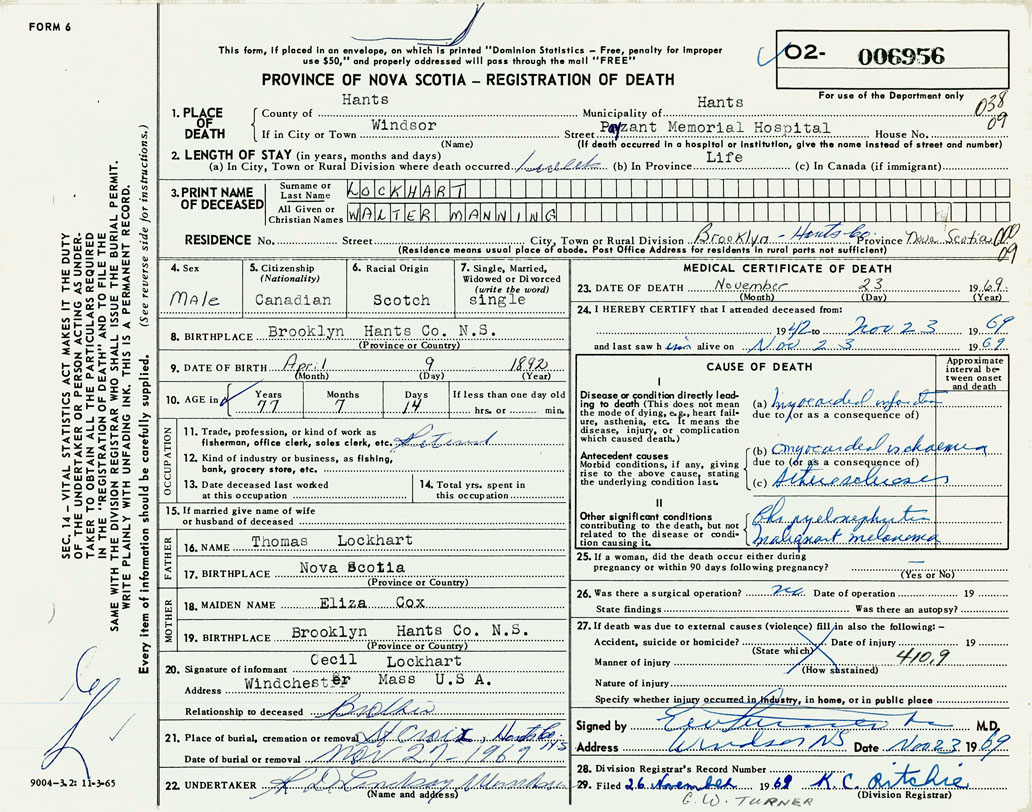 FORM 6
This form, if placed in an envelope, on which is printed "Dominion Statistics – Free, penalty for improper
use $50," and properly addressed will pass through the mail "FREE"
O2- 006956
For use of the Department only
PROVINCE OF NOVA SCOTIA – REGISTRATION OF DEATH
038
09
1. PLACE OF DEATH
County of Hants Municipality of Hants
If in City or Town Windsor Street Payzant Memorial Hospital House No.
(Name) (If death occurred in a hospital or institution, give the name instead of street and number)
2. LENGTH OF STAY (in years, months and days)
(a) In City, Town or Rural Division where death occurred (b) In Province Life (c) In Canada (if immigrant)
3. PRINT NAME OF DECEASED
Surname or Last Name LOCKHART
All Given or Christian Names WALTER MANNING
RESIDENCE No. Street City, Town or Rural Division Brooklyn - Hants Co. Province Nova Scotia
(Residence means usual place of abode. Post Office Address for residents in rural parts not sufficient)
000
09
4. Sex MALE
5. Citizenship (Nationality) Canadian
6. Racial Origin Scotch
7. Single, Married, Widowed or Divorced (write the word) single
8. BIRTHPLACE Brooklyn Hants Co. N.S.
(Province or Country)
9. DATE OF BIRTH April 9 1892
(Month) (Day) (Year)
10. AGE in Years 77 Months 7 Days 14 If less than one day old hrs. or min.
OCCUPATION
11. Trade, profession, or kind of work as
fisherman, office clerk, sales clerk, etc. Retired
12. Kind of industry or business, as fishing,
bank, grocery store, etc.
13. Date deceased last worked
at this occupation
14. Total yrs. spent in
this occupation
15. If married give name of wife
or husband of deceased
FATHER
16. NAME Thomas Lockhart
17. BIRTHPLACE Nova Scotia
(Province or Country)
MOTHER
18. MAIDEN NAME Eliza Cox
19. BIRTHPLACE Brooklyn Hants Co. N.S.
(Province or Country)
20. Signature of informant Cecil Lockhart
Address Windchester Mass U.S A.
Relationship to deceased Brother
21. Place of burial, cremation or removal St Croix, Hants Co. NS
Date of burial or removal Nov 27-1969
22. UNDERTAKER
(Name and address)
MEDICAL CERTIFICATE OF DEATH
23. DATE OF DEATH November 23 1969
(Month) (Day) (Year)
24. I HEREBY CERTIFY that I attended deceased from:
1942 to Nov 23 1969
and last saw him alive on Nov 23 1969
CAUSE OF DEATH
Approximate interval between onset and death
I
Disease or condition directly lead-
ing to death (This does not mean
the mode of dying, e.g., heart fail-
ure, asthenia, etc. It means the
disease, injury, or complication
which caused death.)
(a) myocardial infarction
due to (or as a consequence of)
Antecedent causes
Morbid conditions, if any, giving
rise to the above cause, stating
the underlying condition last.
(b) myocardial ischaemia
due to (or as a consequence of)
(c) Arteriosclerosis
II
Other significant conditions
contributing to the death, but not
related to the disease or condi-
tion causing it.
Chr pyelonephritis
malignant melanoma
25. If a woman, did the death occur either during
pregnancy or within 90 days following pregnancy? —
(Yes or No)
26. Was there a surgical operation? no. Date of operation 19
State findings Was there an autopsy?
27. If death was due to external causes (violence) fill in also the following: –
Accident, suicide or homicide? Date of injury 19
(State which)
Manner of injury 410.9
(How sustained)
Nature of injury
Specify whether injury occurred in industry, in home, or in public place
Signed by M.D.
Address Windsor NS Date Nov 23 1969
28. Division Registrar's Record Number
29. Filed 26 November 1969 K. C. Ritchie
(Division Registrar)
G. W. TURNER
SEC. 14 – VITAL STATISTICS ACT MAKES IT THE DUTY
OF THE UNDERTAKER OR PERSON ACTING AS UNDER-
TAKER TO OBTAIN ALL THE PARTICULARS REQUIRED
IN THE "REGISTRATION OF DEATH" AND TO FILE THE
SAME WITH THE DIVISION REGISTRAR WHO SHALL ISSUE THE BURIAL PERMIT.
WRITE PLAINLY WITH UNFADING INK. THIS IS A PERMANENT RECORD.
Every item of information should be carefully supplied. (See reverse side for instructions.)
9004-3.2: 11-3-65